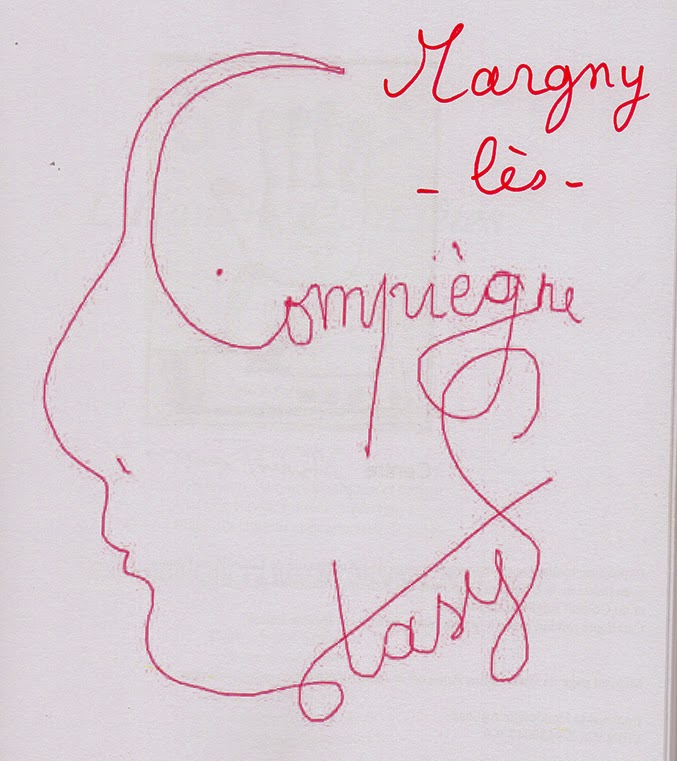 Margny
- lès -
Compiègne
Stasy